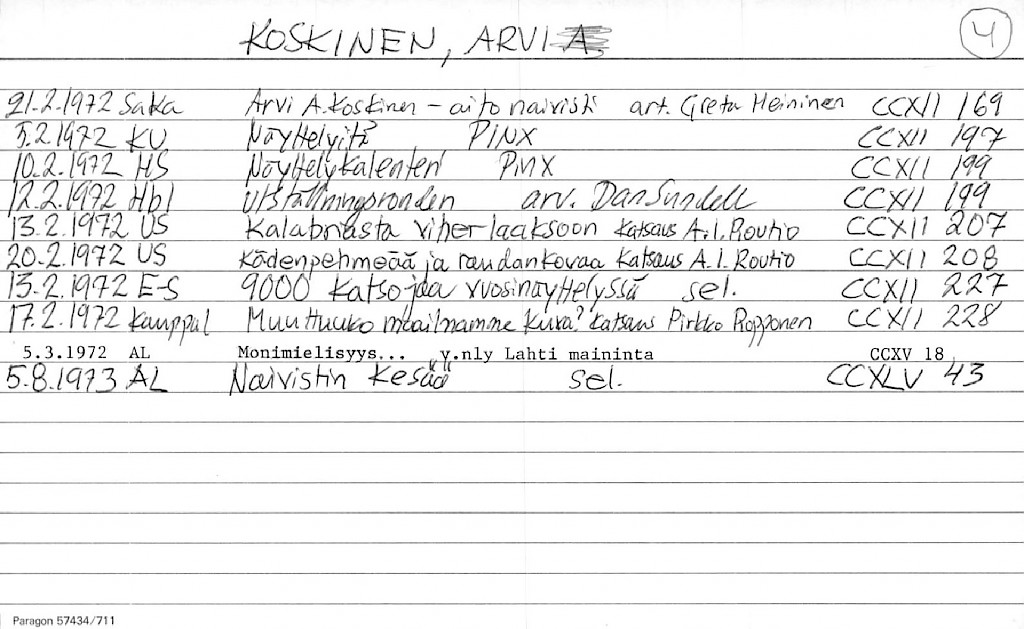 KOSKINEN, ARVI A. 4
21.2.1972 Saka Arvi A. Koskinen - aito naivisti art. Greta Heininen CCXII 169
5.2.1972 KU Näyttelyitä PINX CCXII 197
10.2.1972 HS Näyttelykalenteri PINX CCXII 199
12.2.1972 Hbl Utställningsronden arv. Dan Sundell CCXII 199
13.2.1972 US Kalabriasta viherlaaksoon katsaus A.I. Routio CCXII 207
20.2.1972 US Kädenpehmeää ja raudankovaa katsaus A.I. Routio CCXII 208
13.2.1972 E-S 9000 katsojaa vuosinäyttelyssä sel. CCXII 227
17.2.1972 Kauppal Muuttuuko maailmamme kuva? katsaus Pirkko Ropponen CCXII 228
5.3.1972 AL Monimielisyys... v.nly Lahti maininta CCXV 18
5.8.1973 AL Naivistin kesää sel. CCXLV 43
Paragon 57434/711